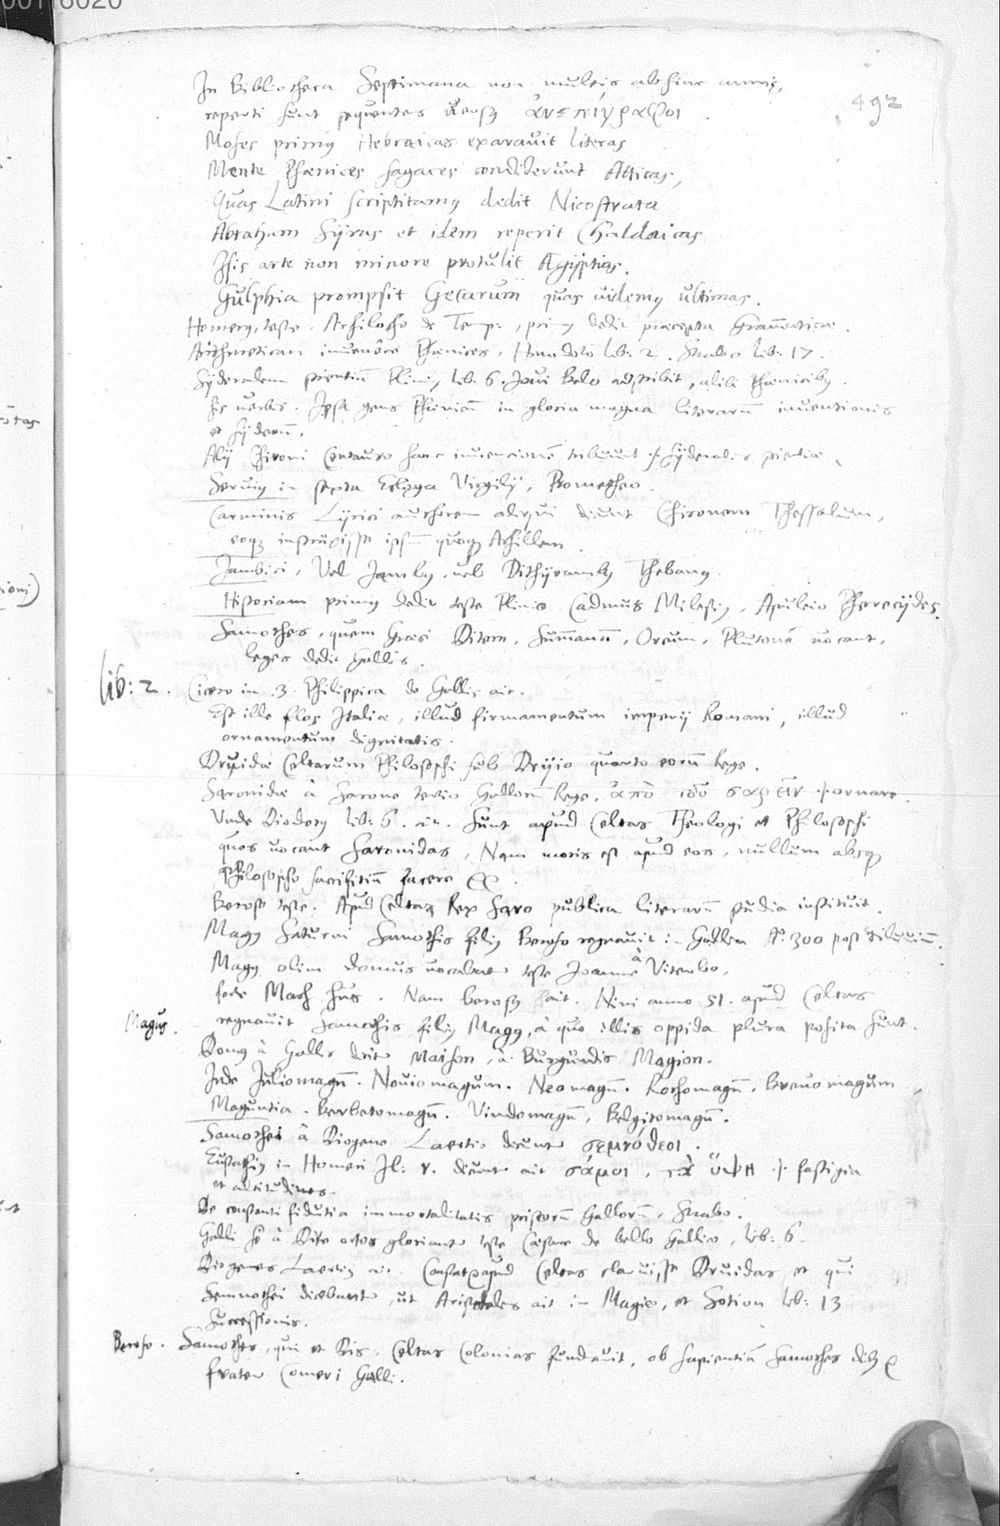 00118020
492
In Bibliotheca Septimana non multis abhinc annis,
reperti sunt sequentes versus ἀνεπίγραφοι.
Moses primus Hebraicas exaravit literas
Mente Phœnices sagaces condiderunt Atticas,
Quas Latini scriptitamus dedit Nicostrata
Abraham Syras et idem reperit Chaldaicas
Isis arte non minore protulit Ægyptias.
Gulphia prompsit Getarum quas videmus ultimas.
Homerus, teste Archilocho de Temp:, primus dedit præcepta Grammaticæ.
Arithmeticam invenere Phœnices, Herodoto lib: 2. Strabo lib: 17.
Syderalem scientiũ Plinius lib. 6. Jovi Belo adscribit, alibi Phœnicibus
his verbis. Ipsa gens Phœnicũ in gloria magna literarũ inventionis
et syderũ.
Alij Chironi Centauro hanc inventionẽ tribuunt syderalis scientiæ,
Servius in sexta Ecloga Virgilij, Prometheo.
Carminis Lyrici authorem aliqui dicunt Chironem Thessalum,
eoq; instruxisse ipsũ quoq; Achillem.
Jambici, Vel Jambus, vel Dithyrambus Thebanus.
Historiam primus dedit teste Plinio Cadmus Milesius, Apuleio Pherecydes.
Samothes, quem Græci Ditem, Summanũ, Orcum, Plutonẽ vocant,
leges dedit Gallis.
lib: 2. Cicero in .3. Philippica de Gallis ait.
Est ille flos Italiæ, illud firmamentum imperij Romani, illud
ornamentum dignitatis.
Druidæ Celtarum Philosophi sub Dryio quarto eorũ Rege.
Saronidæ à Sarone tertio Gallorũ Rege, ἀπὸ τοῦ σαρεῖν ornare.
Unde Diodorus lib: 6. ait. Sunt apud Celtas Theologi et Philosophi
quos vocant Saronidas, Nam moris est apud eos, nullum absq;
Philosopho sacrificiũ facere
Beroso teste. Apud Celtas Rex Saro publica literarũ studia instituit.
Magus Saturni Samothis filius Beroso regnavit in Gallia Aº. 300 post diluviũ.
Magus olim domus vocabatur teste Joanne à Viterbo,
Nam berosus ait. Nini anno 51. apud Celtas
Magus. regnavit Samothis filius Magus, à quo illis oppida plura posita sunt.
Domus à Gallis dicitur Maison, à Burgundis Magion.
Inde Juliomagũ. Noviomagum. Neomagũ. Rothomagũ, Brevomagum,
Maguntia. Berbetomagũ. Vindomagũ, Belgitomagũ.
Samothei à Diogene Laertio dicuntur σεμνόθεοι.
Eustathius in Homeri Il: dicuntur ait σάμοι, τὰ ὕψη fastigia
et altitudines.
De constanti fidutia immortalitatis priscorũ Gallorũ, Strabo.
Galli se à Dite ortos gloriantur teste Cæsare de bello Gallico, lib: 6.
Diogenes Laertius ait. Constat apud Celtas claruisse Druidas et qui
Semnothei dicebantur, ut Aristoteles ait in Magico, et Sotion lib: 13
Successionis.
Beroso. Samothes, qui et Dis, Celtas Colonias fundavit, ob sapientiã Samothes dictus
frater Comeri Galli.